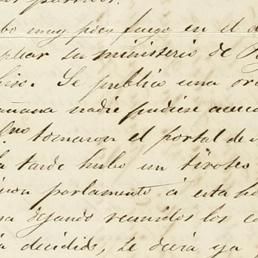 bo muy poco fuego en el
su ministerio de
Se publica una or
nadie pudiese
tomaron el portal de
tarde hubo un tiroteo
parlamento á esta ho
dejando reunidos los
decidido, se decia ya